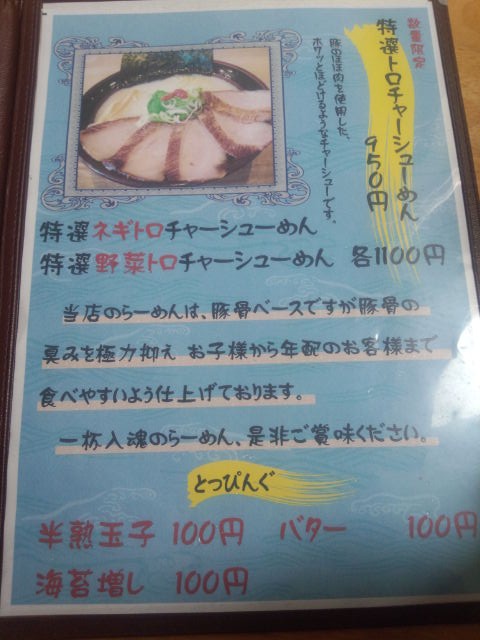 数量限定
特選トロチャーシューめん
950円
豚のほほ肉を使用した、
ホワッとほどけるようなチャーシューです。
特選ネギトロチャーシューめん
特選野菜トロチャーシューめん 各1100円
当店のらーめんは、豚骨ベースですが豚骨の
臭みを極力抑え お子様から年配のお客様まで
食べやすいよう仕上げております。
一杯入魂のらーめん、是非ご賞味ください。
とっぴんぐ
半熟玉子 100円 バター 100円
海苔増し 100円